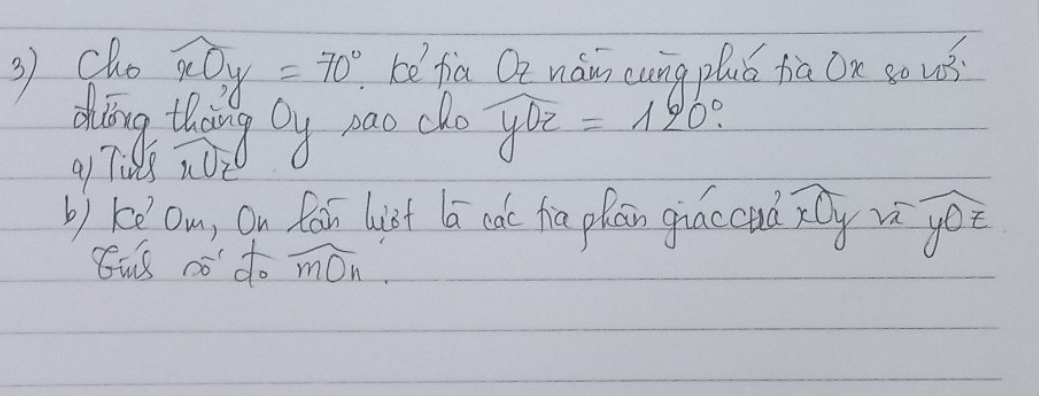 3) Cho xOy = 70°. Kẻ tia Oz nằm cùng phía tia Ox so với
đường thẳng Oy sao cho yOz = 120°.
a) Tính xOz
b) Kẻ Om, On lần lượt là các tia phân giác của xOy và yOz
tính số đo mOn.